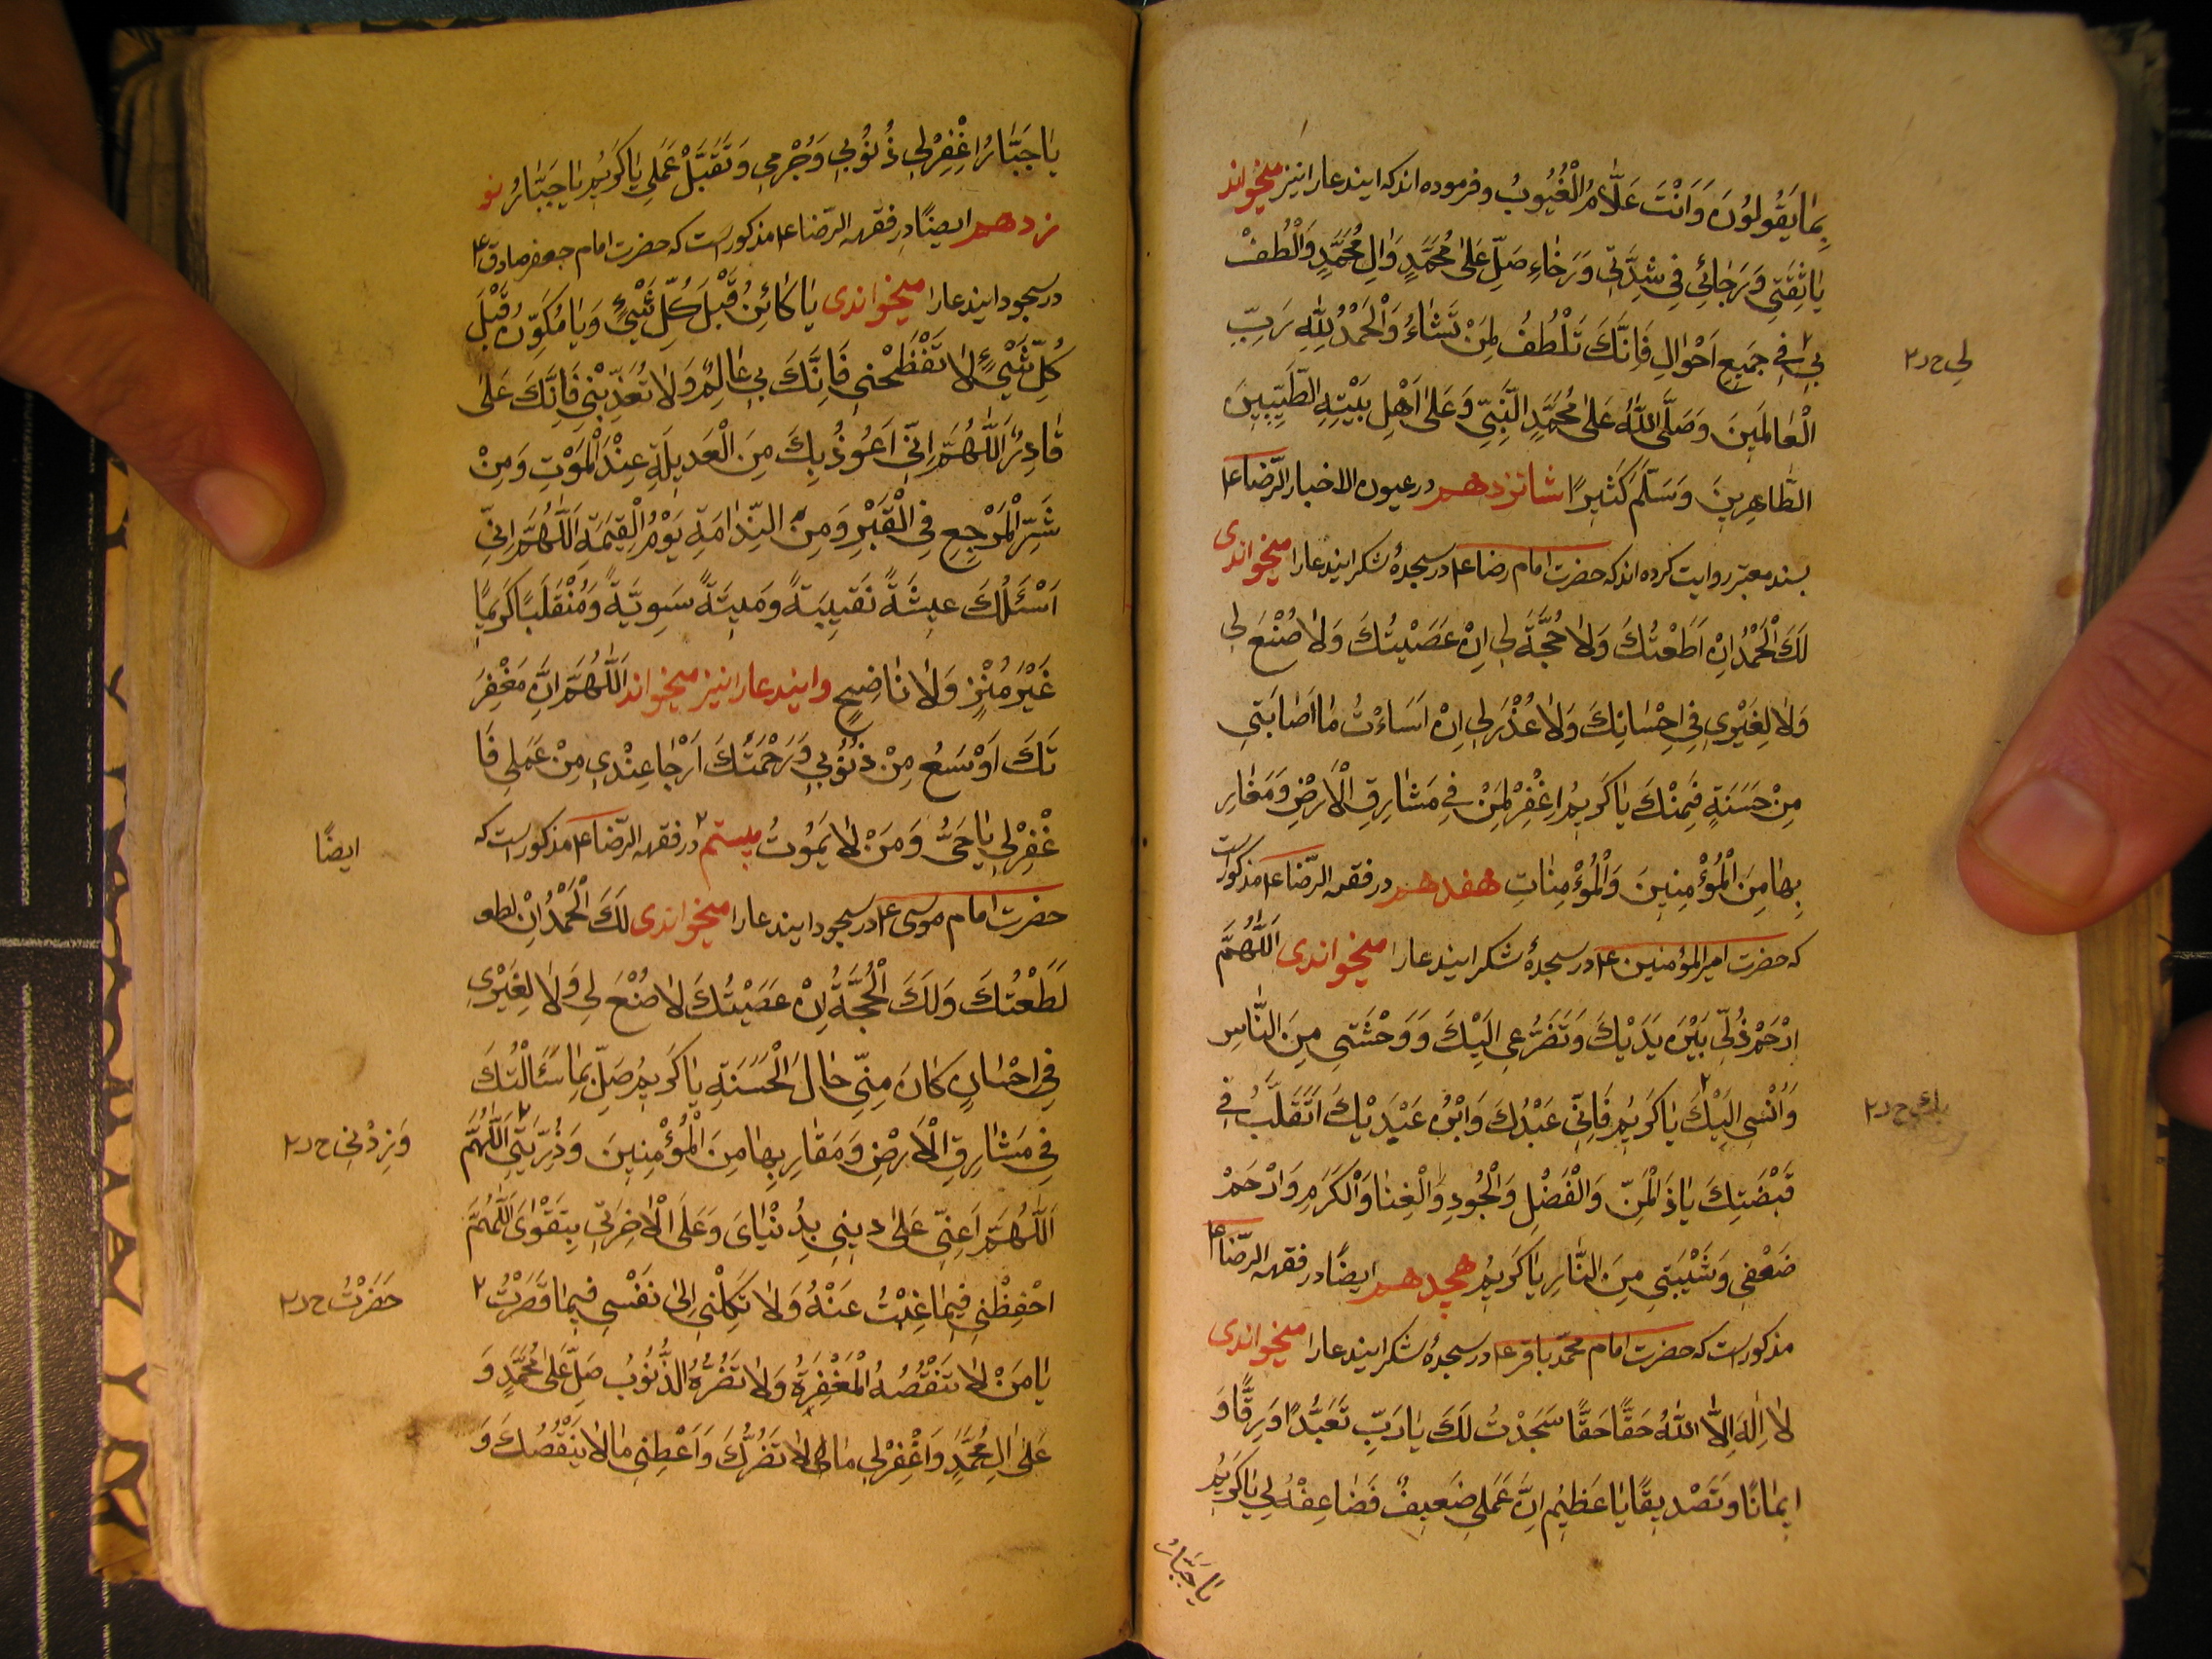 بِمَا يَقُولُونَ وَاَنْتَ عَلَّامُ الْغُيُوبُ وفرموده اند که ایندعا را نیز میخواند
يَا ثِقَتِي وَرَجَائِي فِي شِدَّتِي وَرَخَاءِ صَلِّ عَلَى مُحَمَّدٍ وَالِ مُحَمَّدٍ وَالْطُفْ
بِي فِي جَمِيعِ اَحْوَالِ فَاِنَّكَ تَلْطُفُ لِمَنْ تَشَاءُ وَالْحَمْدُ لِلّهِ رَبِّ
لي خ د ٢
الْعَالَمِينَ وَصَلَّى اللهُ عَلَى مُحَمَّدٍ النَّبِيِّ وَعَلَى اَهْلِ بَيْتِهِ الطَّيِّبِينَ
الطَّاهِرِينَ وَسَلَّمَ كَثِيرًا شانزدهم در عیون الاخبار الرّضا ع
بسند معتبر روایت کرده اند که حضرت امام رضا ع در سجدهٔ شکر ایندعا را میخواندی
لَكَ الْحَمْدُ اِنْ اَطَعْتُكَ وَلَا حُجَّةَ لِي اِنْ عَصَيْتُكَ وَلَا صُنْعَ لِي
وَلَا لِغَيْرِي فِي اِحْسَانِكَ وَلَا عُذْرَ لِي اِنْ اَسَاءْتُ مَا اَصَابَنِي
مِنْ حَسَنَةٍ فَمِنْكَ يَا كَرِيمُ اغْفِرْ لِمَنْ فِي مَشَارِقِ الْاَرْضِ وَمَغَارِ
بِهَا مِنَ الْمُؤْمِنِينَ وَالْمُؤْمِنَاتِ هفدهم در فقه الرّضا ع مذکور است
که حضرت امیر المؤمنین ع در سجدهٔ شکر ایندعا را میخواندی اَللّهُمَّ
ارْحَمْ ذُلِّي بَيْنَ يَدَيْكَ وَتَضَرُّعِي اِلَيْكَ وَوَحْشَتِي مِنَ النَّاسِ
وَاُنْسِي اِلَيْكَ يَا كَرِيمُ فَاِنِّي عَبْدُكَ وَابْنُ عَبْدَيْكَ اَتَقَلَّبُ فِي
بك خ د ٢
قَبْضَتِكَ يَا ذَالْمَنِّ وَالْفَضْلِ وَالْجُودِ وَالْغِنَا وَالْكَرَمِ وَارْحَمْ
ضَعْفِي وَشَيْبَتِي مِنَ النَّارِ يَا كَرِيمُ هجدهم ایضًا در فقه الرّضا ع
مذکور است که حضرت امام محمّد باقر ع در سجدهٔ شکر ایندعا را میخواندی
لَا اِلهَ اِلَّا اللهُ حَقًّا حَقًّا سَجَدْتُ لَكَ يَا رَبِّ تَعَبُّدًا وَرِقًّا وَ
اِيمَانًا وَتَصْدِيقًا يَا عَظِيمُ اِنَّ عَمَلِي ضَعِيفٌ فَضَاعِفْهُ لِي يَا كَرِيمُ
يَا جَبَّارُ
يَا جَبَّارُ اغْفِرْ لِي ذُنُوبِي وَجُرْمِي وَتَقَبَّلْ عَمَلِي يَا كَرِيمُ يَا جَبَّارُ نو
زدهم ایضًا در فقه الرّضا ع مذکور است که حضرت امام جعفر صادق ع
در سجود ایندعا را میخواندی يَا كَائِنُ قَبْلَ كُلِّ شَيْءٍ وَيَا مُكَوِّنُ قَبْلَ
كُلِّ شَيْءٍ لَا تَفْظَحْنِي فَاِنَّكَ بِي عَالِمٌ وَلَا تُعَذِّبْنِي فَاِنَّكَ عَلَى
قَادِرٌ اَللّهُمَّ اِنِّي اَعُوذُ بِكَ مِنَ الْعَدِيلَةِ عِنْدَ الْمَوْتِ وَمِنْ
شَرِّ الْمَرْجِعِ فِي الْقَبْرِ وَمِنَ النِّدَامَةِ يَوْمَ الْقِيمَةِ اَللّهُمَّ اِنِّي
اَسْئَلُكَ عِيشَةً نَقِيبَةً وَمِيتَةً سَوِيَّةً وَمُنْقَلَبًا كَرِيمًا
غَيْرَ مُخْزٍ وَلَا نَاضِحٍ وایندعا را نیز میخواند اَللّهُمَّ اِنَّ مَغْفِرَ
تَكَ اَوْسَعُ مِنْ ذُنُوبِي وَرَحْمَتُكَ اَرْجَا عِنْدِي مِنْ عَمَلِي فَا
غْفِرْ لِي يَا حَيُّ وَمَنْ لَا يَمُوتُ بیستم در فقه الرّضا ع مذکور است که
ایضًا
حضرت امام موسی ع در سجود ایندعا را میخواندی لَكَ الْحَمْدُ اِنْ لطو
لَطَعْتُكَ وَلَكَ الْحُجَّةُ اِنْ عَصَيْتُكَ لَا صُنْعَ لِي وَلَا لِغَيْرِي
فِي احْسَانٍ كَانَ مِنِّي حَالَ الْحَسَنَةِ يَا كَرِيمُ صَلِّ بِمَا سَئَالْتُكَ
فِي مَشَارِقِ الْاَرْضِ وَمَقَارِ بِهَا مِنَ الْمُؤْمِنِينَ وَذُرِّيَّتِي اَللّهُمَّ
وَزِدْنِي خ د ٢
اَللّهُمَّ اَعِنِّي عَلَى دِينِي بِدُنْيَايَ وَعَلَى الْاخِرَتِي بِتَقْوَايَ اَللّهُمَّ
احْفِظْنِي فِيمَا غِبْتُ عَنْهُ وَلَا تَكِلْنِي اِلَى نَفْسِي فِيمَا قَصَرْتُ
حَضَرْتُ خ د ٢
يَا مَنْ لَا تَنْقُصُهُ الْمَغْفِرَةُ وَلَا تَضُرُّهُ الذُّنُوبُ صَلِّ عَلَى مُحَمَّدٍ وَ
عَلَى الِ مُحَمَّدٍ وَاغْفِرْ لِي مَا لَا تَضُرُّكَ وَاَعْطِنِي مَا لَا يَنْقُصُكَ وَ